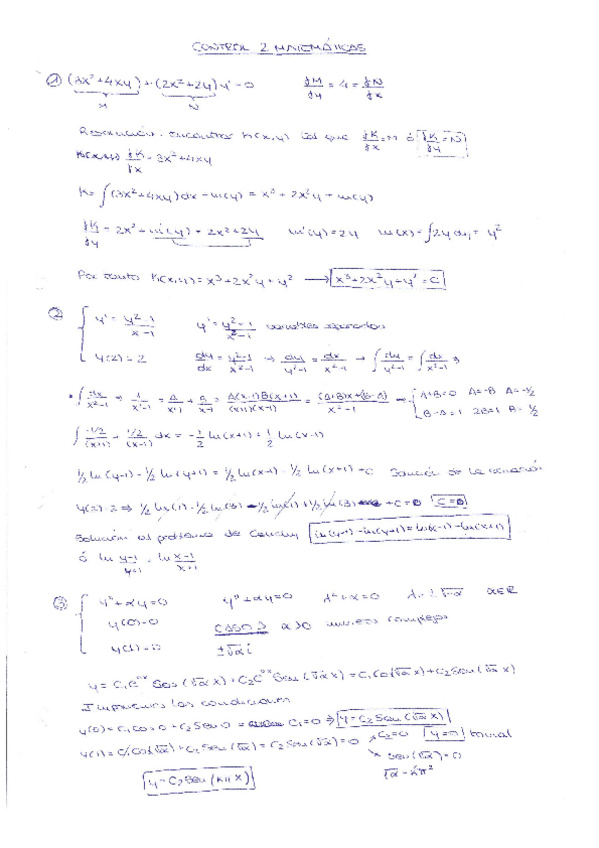 CONTROL 2 MATEMÁTICAS
① (3x²+4xy)+(2x²+2y)y'=0 δM/δy = 4 = δN/δx
M N
Resolución: encontrar K(x,y) tal que δK/δx = M ó δK/δy = N
δK/δx = 3x²+4xy
K = ∫(3x²+4xy)dx = m(y) = x³+2x²y+m(y)
δK/δy = 2x²+m'(y) = 2x²+2y m'(y)=2y m(x)=∫2y dy = y²
Por tanto K(x,y) = x³+2x²y+y² → x³+2x²y+y²=C
② y' = y²-1/x²-1 y' = y²-1/x²-1 variables separadas
y(2)=2 dy/dx = y²-1/x²-1 → dy/y²-1 = dx/x²-1 → ∫dy/y²-1 = ∫dx/x²-1
• ∫dx/x²-1 → 1/x²-1 = A/x+1 + B/x-1 = A(x-1)B(x+1)/(x+1)(x-1) = (A+B)x+(B-A)/x²-1 → A+B=0 A=-B A=-1/2
B-A=1 2B=1 B=1/2
∫ -1/2/(x+1) + 1/2/(x-1) dx = -1/2 ln(x+1)+1/2 ln(x-1)
1/2 ln(y-1) - 1/2 ln(y+1) = 1/2 ln(x-1) - 1/2 ln(x+1) + C Solución de la ecuación
y(2)=2 → 1/2 ln(1) - 1/2 ln(3) - 1/2 ln(1) + 1/2 ln(3) + C = 0 C=0
Solución al problema de Cauchy ln(y-1)-ln(y+1)=ln(x-1)-ln(x+1)
ó ln y-1/y+1 = ln x-1/x+1
③ y''+αy=0 y''+αy=0 λ²+α=0 λ=±√-α α∈R
y(0)=0 CASO 1 α>0 números complejos
y(1)=0 ±√α i
y = C₁e^0x Cos(√α x)+C₂e^0x Sen(√α x) = C₁Cos(√α x)+C₂Sen(√α x)
Imponemos las condiciones
y(0)=C₁Cos 0 + C₂ Sen 0 = C₁=0 ⇒ y=C₂Sen(√α x)
y(1)=C₁Cos(√α)+C₂Sen(√α)=C₂Sen(√α)=0 C₂=0 y=0 trivial
Sen(√α)=0
y=C₂Sen(Kπx)